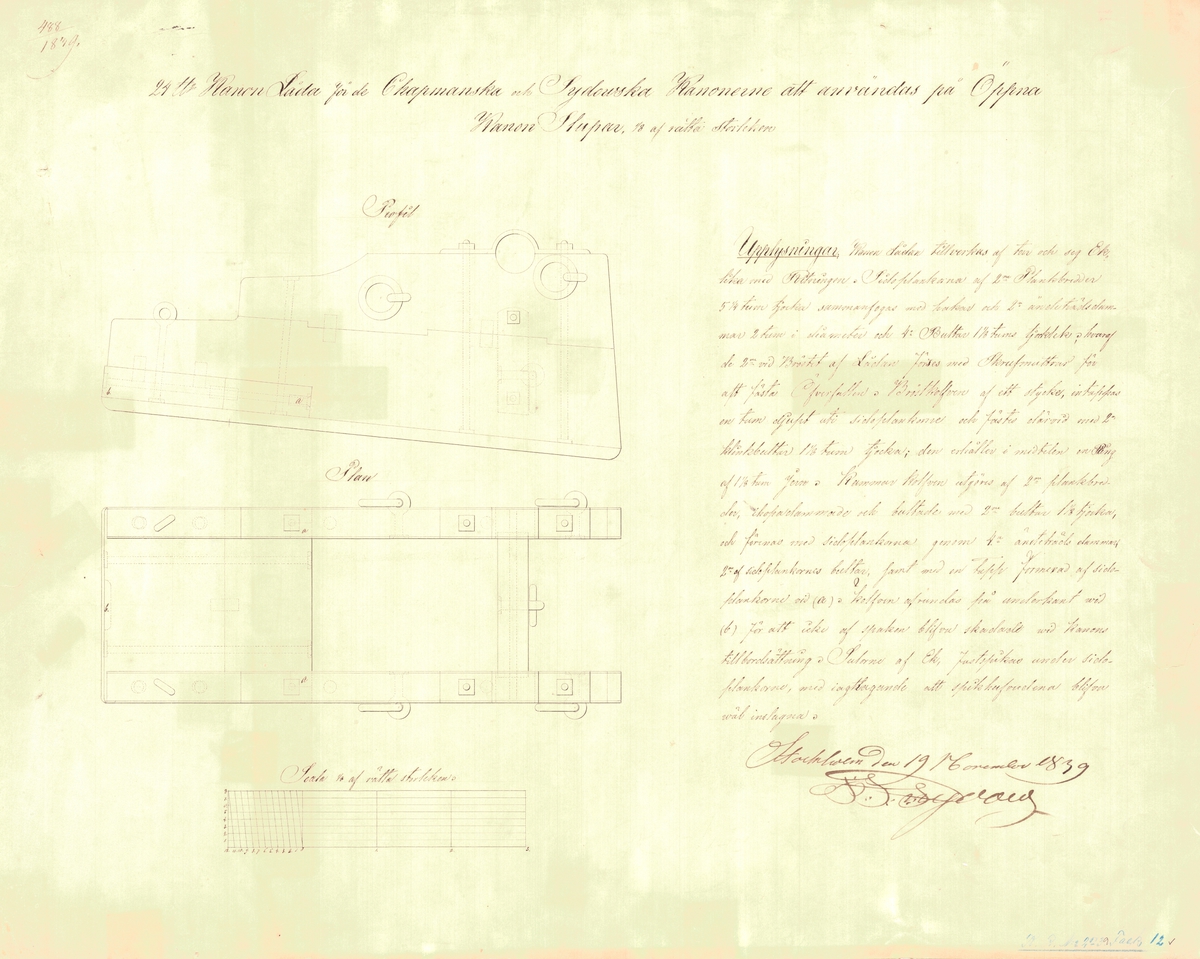 488
1839.
24 ℔ Kanon Låda för de Chapmanska och Sydowska Kanonerne att användas på Öppna
Kanon Slupar, 1/8 af rätta storleken
Profil
b
a
Plan
a
b
a
Scala 1/8 af rätta storleken
Upplysningar, Kanon Lådan tillverkas af torr och seg Ek,
lika med Ritningen. Sidoplankorna af 2ne Planksbredder
5 1/2 tum tjocka sammanfogas med hakar och 2ne ändeträdsdum-
mar 2 tum i diameter och 4 Bultar 1 1/8 tums tjocklek, hvaraf
de 2ne vid Bröstet af Lådan förses med Skrufmuttrar för
att fästa Öfverfallen. Bröstkolfven af ett stycke, intappas
en tum djupt uti sidoplankorne och fästes därvid med 2ne
klinkbultar 1 1/8 tum tjocka; den erhåller i medtelen en Ring
af 1 1/8 tum Jern. Kammar Kolfven utgöres af 2ne planksbred-
der, och bultade med 2ne bultar 1 1/8 tjocka,
och förenas med sidoplankorna genom 4 ändeträds dummar,
2ne af sidoplankornes bultar, samt med en tapp formerad af sido-
plankorne vid (a). Kolfven afrundas på underkant vid
(b) för att icke af spaken blifva skadade vid Kanons
tillbordsättning. Sulorne af Ek, fastspikas under sido-
plankorne, med iagttagande att spikhufvudena blifva
wäl inslagna.
Stockholm den 19 November 1839
12